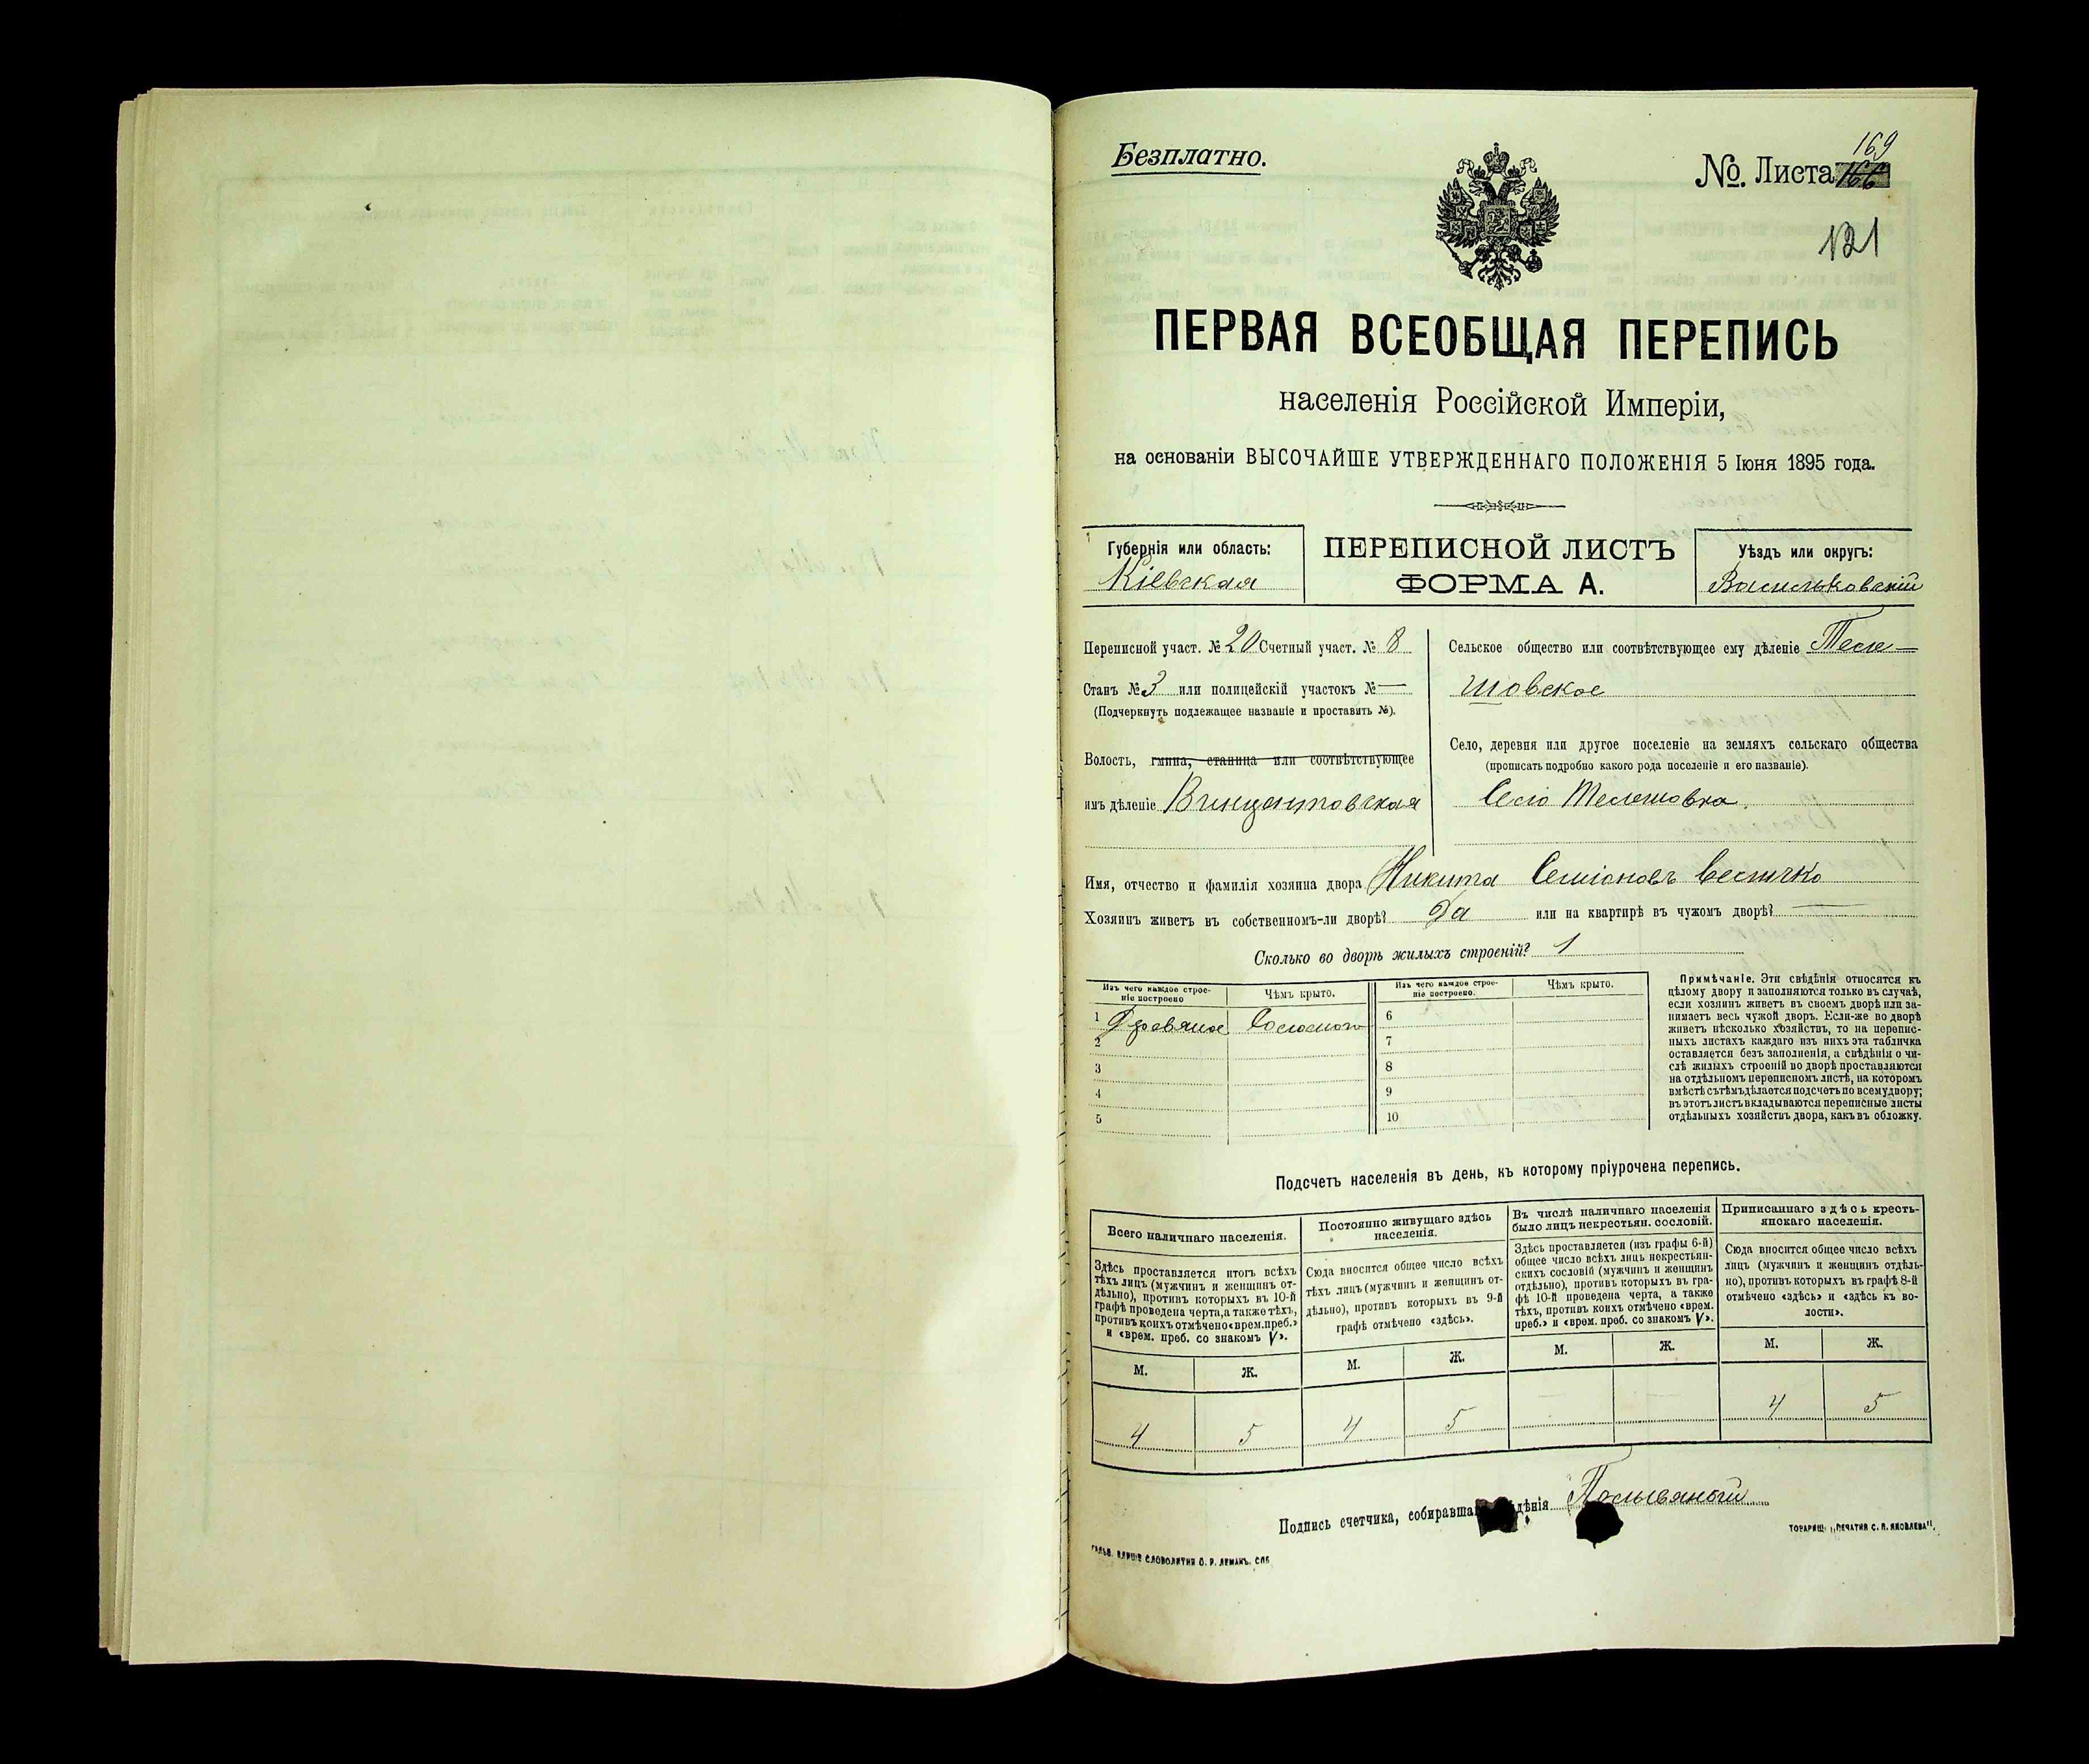 Безплатно.
№. Листа 169
166
121
ПЕРВАЯ ВСЕОБЩАЯ ПЕРЕПИСЬ
населенія Россійской Имперіи,
на основаніи ВЫСОЧАЙШЕ УТВЕРЖДЕННАГО ПОЛОЖЕНІЯ 5 Іюня 1895 года.
Губернія или область:
Кіевская
ПЕРЕПИСНОЙ ЛИСТЪ
ФОРМА А.
Уѣздъ или округъ:
Васильковскій
Переписной участ. № 20 Счетный участ. № 8
Станъ № 3 или полицейскій участокъ № —
(Подчеркнуть подлежащее названіе и проставить №).
Волость, гмина, станица или соотвѣтствующее
имъ дѣленіе Винцентовская
Сельское общество или соотвѣтствующее ему дѣленіе Теле-
шовское
Село, деревня или другое поселеніе на земляхъ сельскаго общества
(прописать подробно какого рода поселеніе и его названіе).
Село Телешовка.
Имя, отчество и фамилія хозяина двора Никита Семіоновъ
Хозяинъ живетъ въ собственномъ-ли дворѣ? Да или на квартирѣ въ чужомъ дворѣ? —
Сколько во дворѣ жилыхъ строеній? 1
Изъ чего каждое строе-
ніе построено
Чѣмъ крыто.
Изъ чего каждое строе-
ніе построено.
Чѣмъ крыто.
1 Соломою 6
2 7
3 8
4 9
5 10
Примѣчаніе. Эти свѣдѣнія относятся къ
цѣлому двору и заполняются только въ случаѣ,
если хозяинъ живетъ въ своемъ дворѣ или за-
нимаетъ весь чужой дворъ. Если-же во дворѣ
живетъ нѣсколько хозяйствъ, то на перепис-
ныхъ листахъ каждаго изъ нихъ эта табличка
оставляется безъ заполненія, а свѣдѣнія о чи-
слѣ жилыхъ строеній во дворѣ проставляются
на отдѣльномъ переписномъ листѣ, на которомъ
вмѣстѣ съ тѣмъ дѣлается подсчетъ по всему двору;
въ этотъ листъ вкладываются переписные листы
отдѣльныхъ хозяйствъ двора, какъ въ обложку.
Подсчетъ населенія въ день, къ которому пріурочена перепись.
Всего наличнаго населенія.
Здѣсь проставляется итогъ всѣхъ
тѣхъ лицъ (мужчинъ и женщинъ от-
дѣльно), противъ которыхъ въ 10-й
графѣ проведена черта, а также тѣхъ,
противъ коихъ отмѣчено «врем. преб.»
и «врем. преб. со знакомъ V».
Постоянно живущаго здѣсь
населенія.
Сюда вносится общее число всѣхъ
тѣхъ лицъ (мужчинъ и женщинъ от-
дѣльно), противъ которыхъ въ 9-й
графѣ отмѣчено «здѣсь».
Въ числѣ наличнаго населенія
было лицъ некрестьян. сословій.
Здѣсь проставляется (изъ графы 6-й)
общее число всѣхъ лицъ некрестьян-
скихъ сословій (мужчинъ и женщинъ
отдѣльно), противъ которыхъ въ гра-
фѣ 10-й проведена черта, а также
тѣхъ, противъ коихъ отмѣчено «врем.
преб.» и «врем. преб. со знакомъ V».
Приписаннаго здѣсь кресть-
янскаго населенія.
Сюда вносится общее число всѣхъ
лицъ (мужчинъ и женщинъ отдѣль-
но), противъ которыхъ въ графѣ 8-й
отмѣчено «здѣсь» и «здѣсь къ во-
лости».
М. Ж. М. Ж. М. Ж. М. Ж.
4 5 4 5 4 5
Подпись счетчика,
ТОВАРИЩ. „ПЕЧАТНЯ С. П. ЯКОВЛЕВА".
СЛОВОЛИТНЯ О. И. ЛЕМАНЪ. СПБ